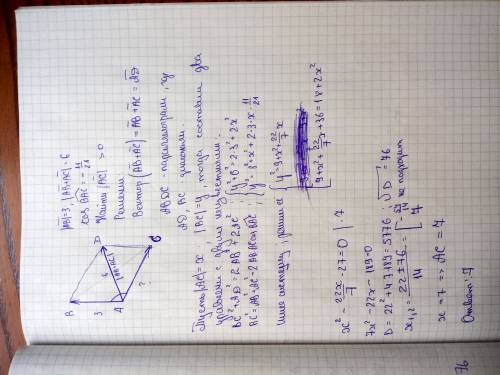 |AB|=3, |AB+AC|=6
cos BAC = -11/21
Найти |AC| > 0
Решение
Вектор |AB+AC| = AB+AC = AD
ABDC - параллелограм, где
AD, BC диагонали.
B
D
A
C
3
6
|AB+AC|
?
Пусть |AC|=x, |BC|=y, тогда составим два
уравнения с двумя неизвестными.
BC²+AD²=2AB²+2AC² { y²+6²=2·3²+2x²
BC²=AB²+AC²-2AB·AC·cosBAC { y²=3²+x²+2·3·x·11/21
Имея систему, решаем { y²=9+x²+22/7x
9+x²+22/7x+36=18+2x²
x²-22x/7-27=0 |·7
7x²-22x-189=0
D=22²+4·7·189=5776, √D=76
x₁,₂=(22±76)/14=[-54/14 не подходит
7
x=7 => AC=7
Ответ: 7
76